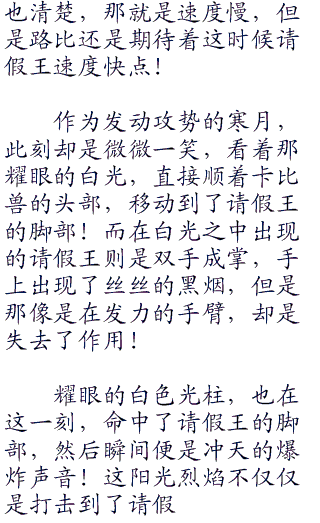 也清楚，那就是速度慢，但
是路比还是期待着这时候请
假王速度快点！
作为发动攻势的寒月，
此刻却是微微一笑，看着那
耀眼的白光，直接顺着卡比
兽的头部，移动到了请假王
的脚部！而在白光之中出现
的请假王则是双手成掌，手
上出现了丝丝的黑烟，但是
那像是在发力的手臂，却是
失去了作用！
耀眼的白色光柱，也在
这一刻，命中了请假王的脚
部，然后瞬间便是冲天的爆
炸声音！这阳光烈焰不仅仅
是打击到了请假